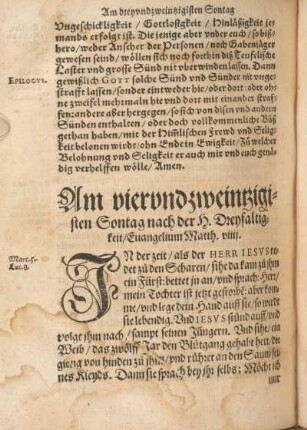 Am dreyvndzweintzigisten Sontag
Vngeschickligkeit / Gottlosigkeit / Hinläßigkeit je-
mands erfolgt ist. Die jenige aber vnder euch / so biß-
hero / weder Anseher der Personen / noch Gabenjäger
gewesen seind / wöllen sich noch forthin diß Teufelische
Laster vnd grosse Sünd nit vberwinden lassen. Dann
EPILOGVS.
gewißlich GOTT solche Sünd vnd Sünder nit vnge-
strafft lassen / sonder eintweder hie / oder dort: oder oh-
ne zweifel mehrmaln hie vnd dort mit einander straf-
fen: andere aber hergegen / so sich von disen vnd andern
Sünden enthalten / oder doch vollkommenliche Büß
gethan haben / mit der Himlischen Frewd vnd Selig-
keit belonen wirdt / ohn End in Ewigkeit / Zu welcher
Belohnung vnd Seligkeit er auch mir vnd euch genä-
dig verhelffen wölle / Amen.
Am viervndzweintzigi-
sten Sontag nach der H. Dreyfaltig-
keit / Euangelium Matth. viiij.
Marc. 5.
Luc. 8.
IN der zeit / als der HERR IESVS re-
det zu den Scharen / sihe da kam zu jhm
ein Fürst: bettet jn an / vnd sprach: Herr /
mein Tochter ist jetz gestorbē: aber kom-
me / vnd lege dein Hand auff sie / so wirdt
sie lebendig. Vnd IESVS stund auff / vnd
volget jhm nach / sampt seinen Jüngern. Vnd sihe / ein
Weib / das zwölff Jar den Blutgang gehabt hett / die
gieng von hinden zu jhm / vnd rühret an den Saum sei-
nes Kleyds. Dann sie sprach bey jhr selbs: Möcht ich